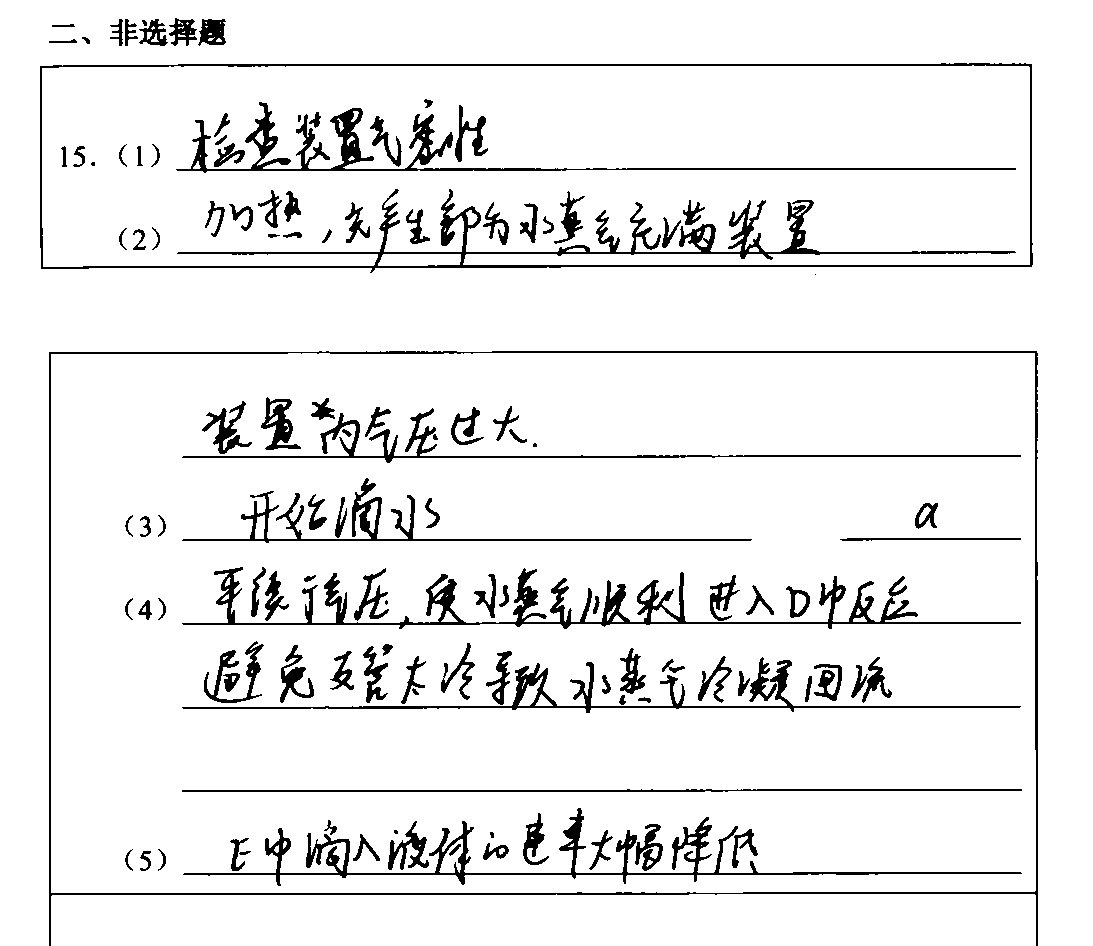 二、非选择题
15.（1）检查装置气密性
（2）加热,产生部为水蒸气充满装置
装置内气压过大.
（3）开始滴水 a
（4）平缓气压,使水蒸气顺利进入D中反应
避免支管太冷导致水蒸气冷凝回流
（5）E中滴入液体的速率大幅降低